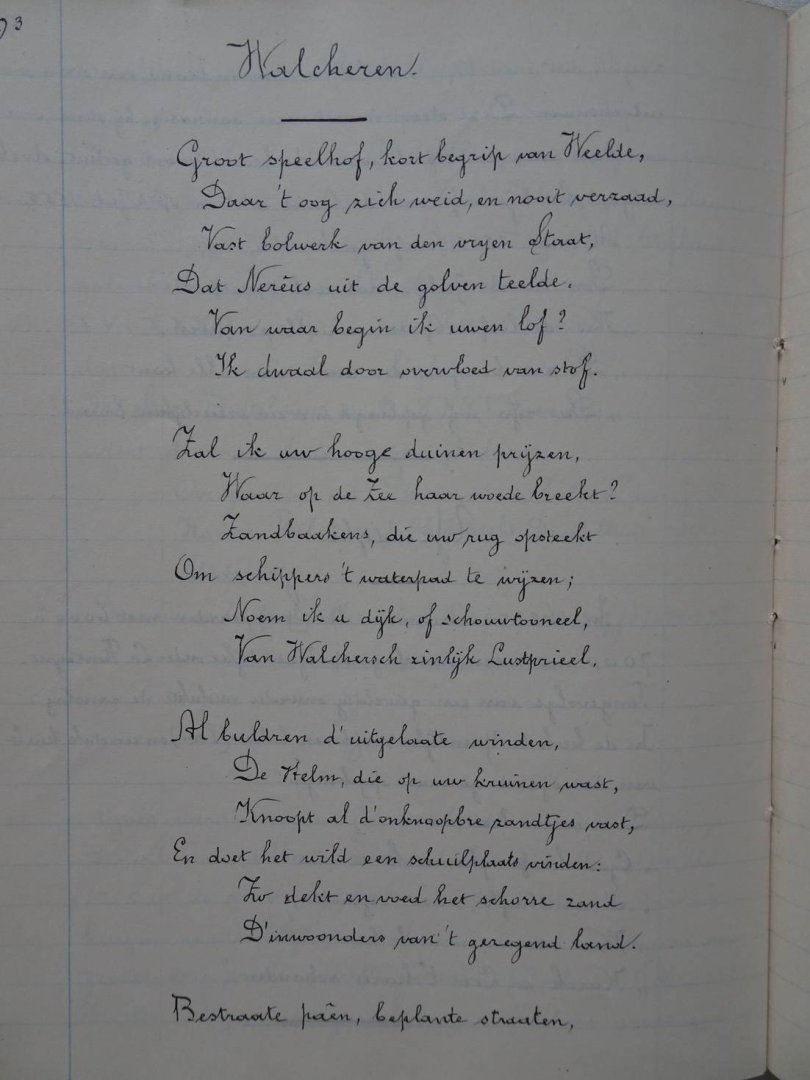 3
Walcheren.
Groot speelhof, kort begrip van Weelde,
Daar 't oog zich weid, en nooit verzaad,
Vast bolwerk van den vryen Staat,
Dat Nerêus uit de golven teelde.
Van waar begin ik uwen lof?
Ik dwaal door overvloed van stof.
Zal ik uw hooge duinen prijzen,
Waar op de Zee haar woede breekt?
Zandbaakens, die uw rug opsteekt
Om schippers 't waterpad te wijzen;
Noem ik u dijk, of schouwtooneel,
Van Walchersch zinlijk Lustprieel.
Al buldren d'uitgelaate winden,
De Helm, die op uw kruinen wast,
Knoopt al d'onknoopbre zandtjes vast,
En doet het wild een schuilplaats vinden:
Zo dekt en voed het schorre zand
D'inwoonders van 't gezegend land.
Bestraate paên, beplante straaten,